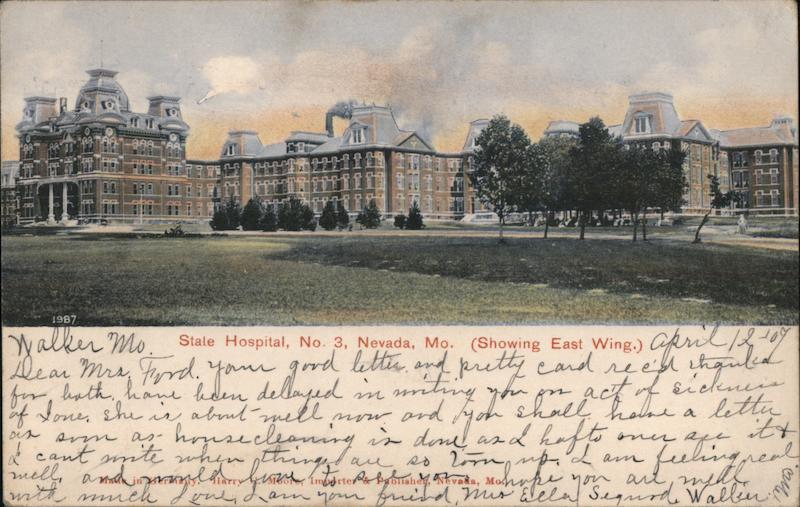 1987
State Hospital, No. 3, Nevada, Mo. (Showing East Wing.)
Walker Mo. April 12 '07
Dear Mrs Ford. your good letter and pretty card rec'd thanks
for both. have been delayed in writing you on act of sickness
of Ione. she is about well now and you shall have a letter
as soon as housecleaning is done as I hafto over see it &
I cant write when things are so torn up. I am feeling real
well. and would love to see you hope you are well.
Made in Germany. Harry C. Moore, Importer & Publisher, Nevada, Mo.
with much Love, I am your friend, Mrs Ella Walker. Mo